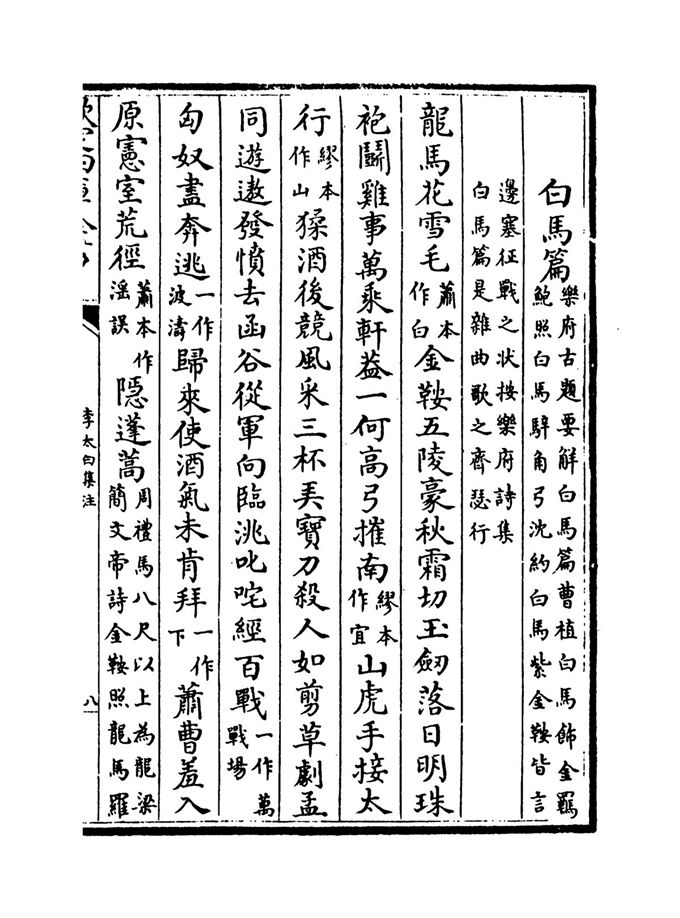 白馬篇樂府古題要解白馬篇曹植白馬飾金羈
鮑照白馬騂角弓沈約白馬紫金鞍皆言
邊塞征戰之狀按樂府詩集
白馬篇是雜曲歌之齊瑟行
龍馬花雪毛蕭本作白金鞍五陵豪秋霜切玉劒落日明珠
袍鬭雞事萬乘軒葢一何高弓摧南繆本作宜山虎手接太
行繆本作山猱酒後競風采三杯弄寶刀殺人如剪草劇孟
同遊遨發憤去函谷從軍向臨洮叱咤經百戰一作萬戰場
匈奴盡奔逃一作波濤歸來使酒氣未肯拜一作下蕭曹羞入
原憲室荒徑蕭本作滛誤隱蓬蒿周禮馬八尺以上為龍梁
簡文帝詩金鞍照龍馬羅
李太白集注
八